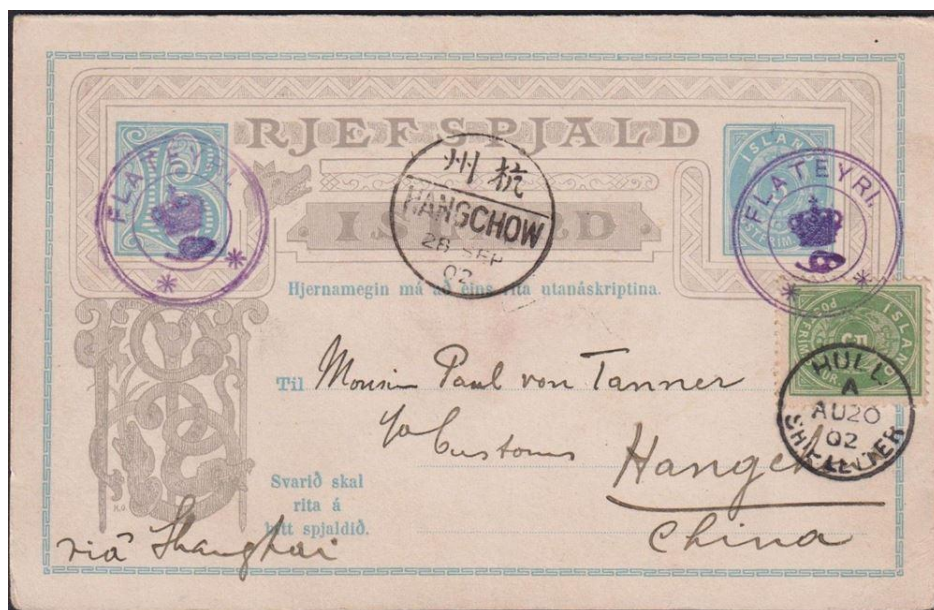 BRJEFSPJALD
ÍSLAND
FLATEYRI.
FLATEYRI.
杭州
HANGCHOW
28 SEP
02
Hjernamegin má að eins rita utanáskriptina.
ÍSLAND
5
HULL
A
AU20
02
SHIP LETTER
Til Monsieur Paul von Tanner
c/o Customs
Hangchow
China
Svarið skal
rita á
hitt spjaldið.
viâ Shanghai